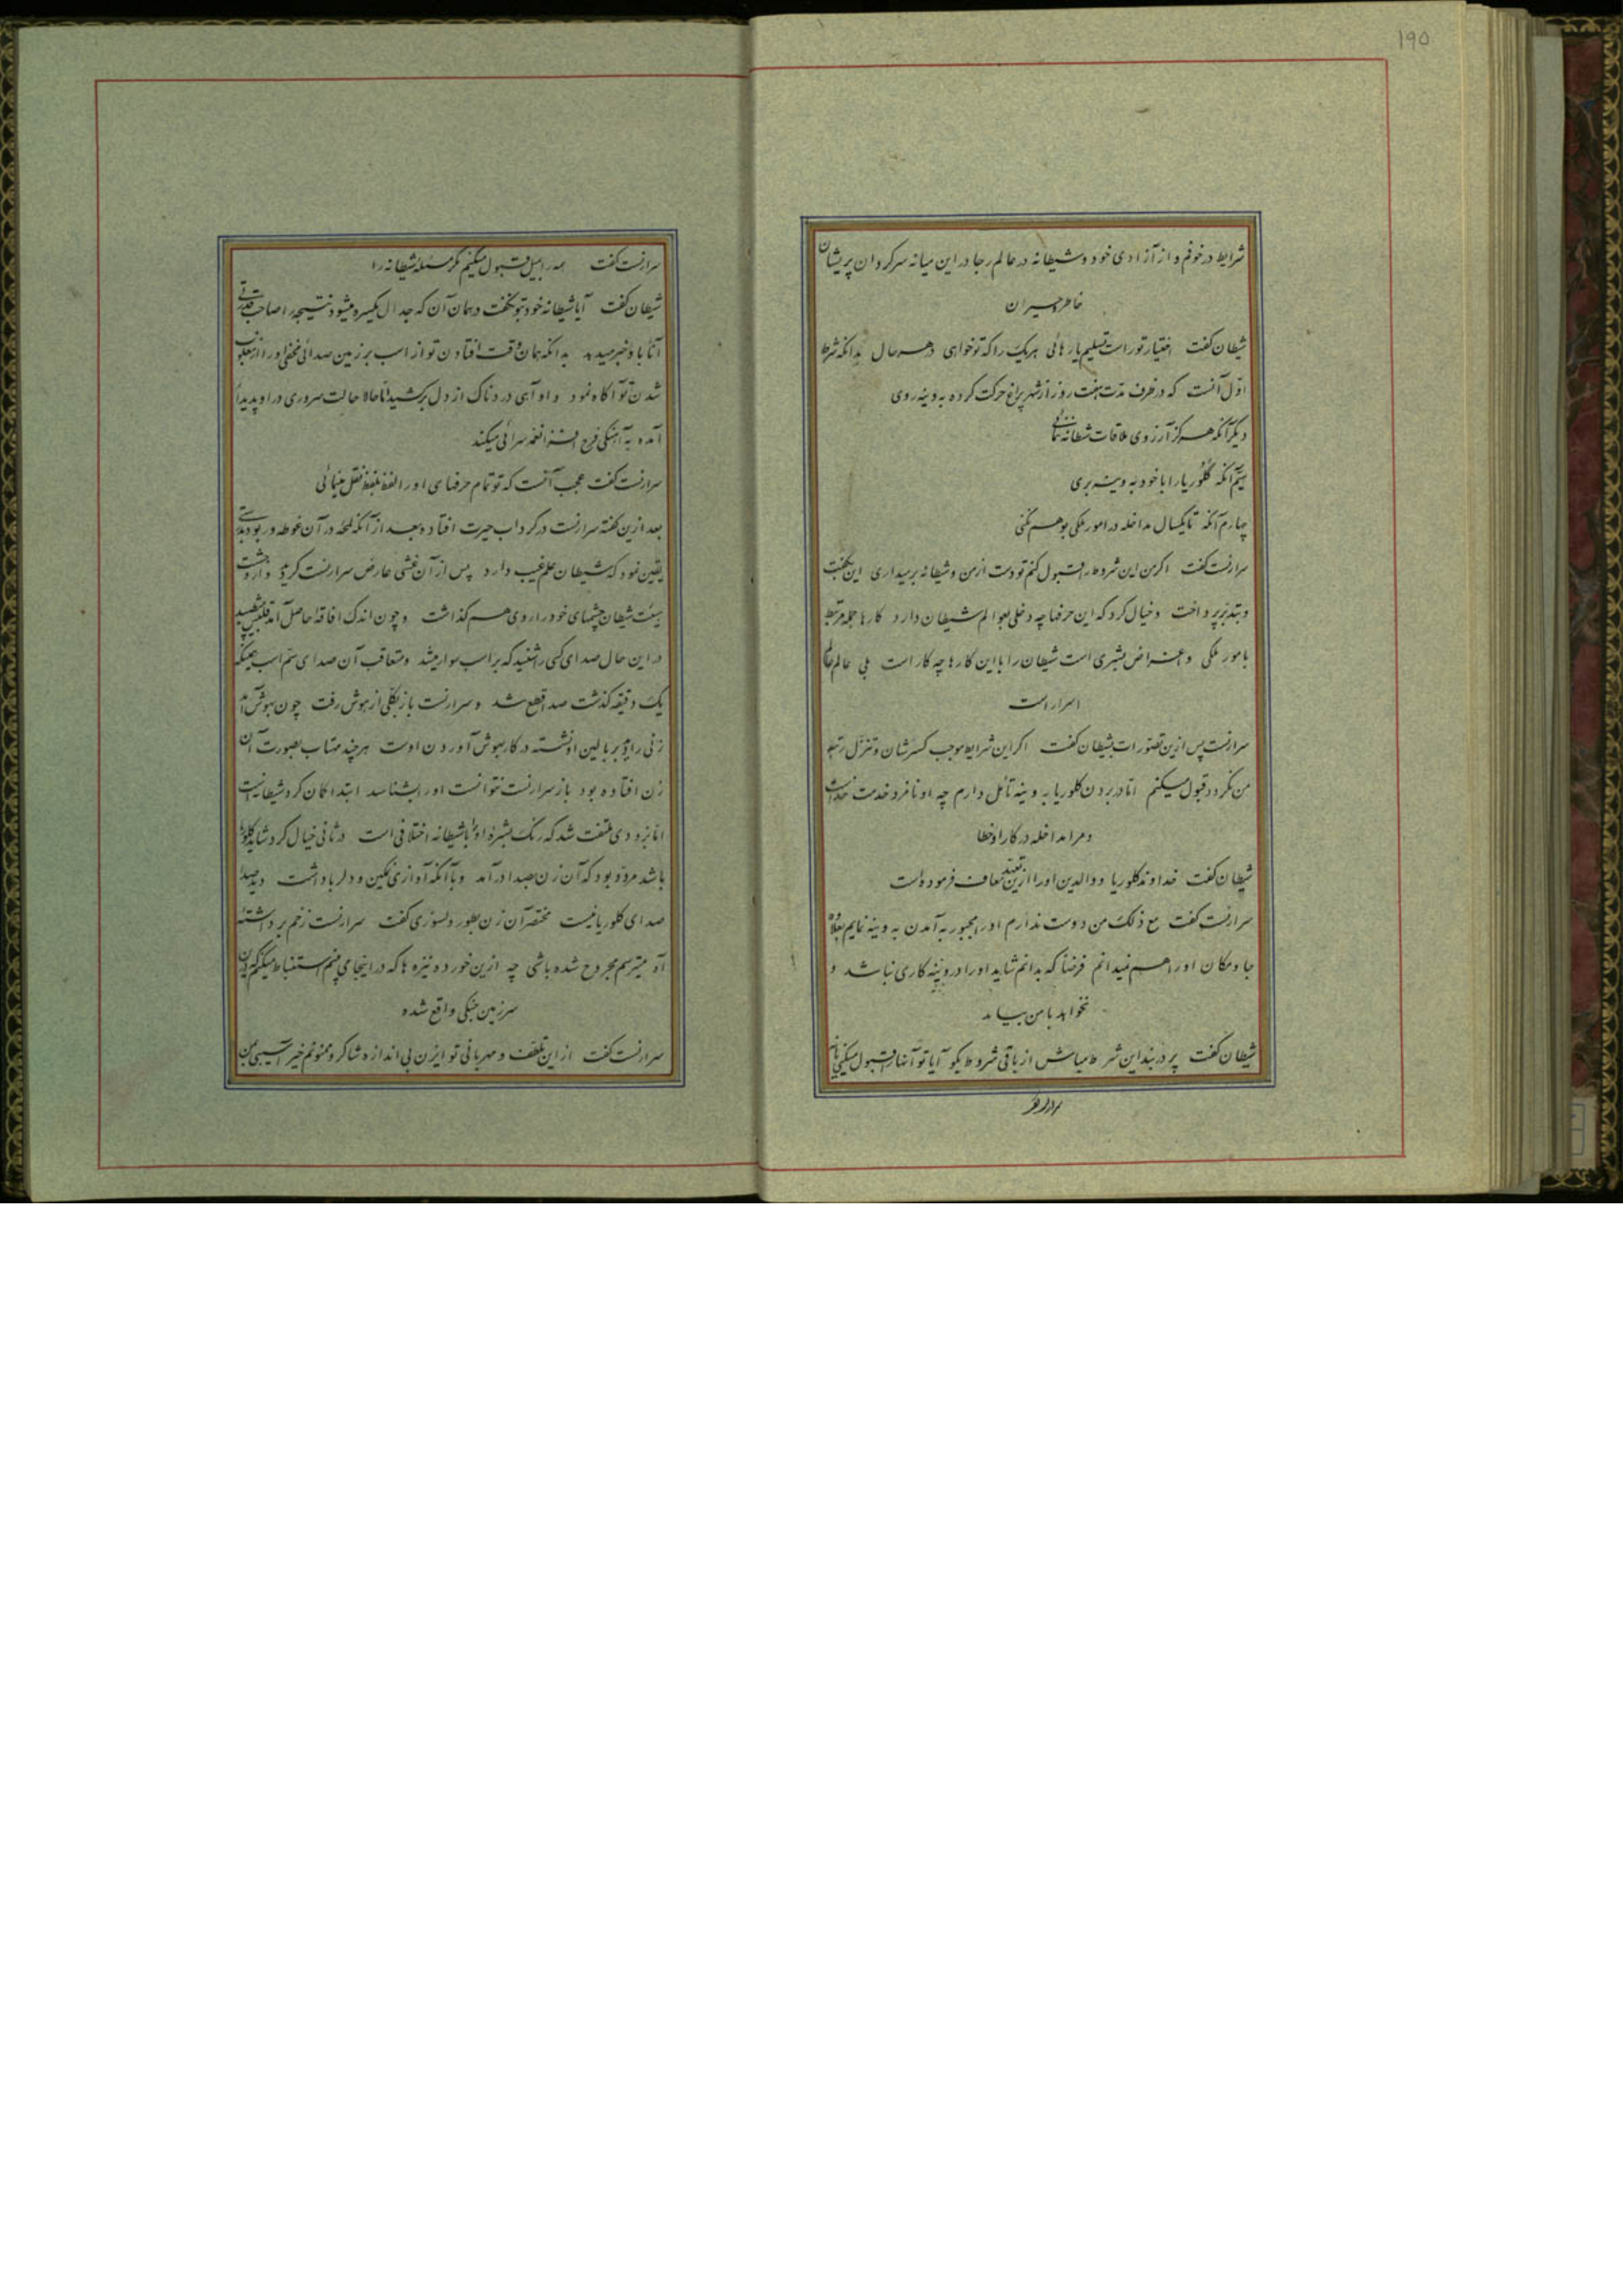 ۱۹۵
شرایط در خوفم و از آزادی خود و شیطانه در عالم رجا در این میانه سرکردان پریشان
خاطر و حیران
شیطان کفت اختیار توراست تسلیم یا رهائی هریک را که تو خواهی در هر حال بدانکه شرط
اوّل آنست که در ظرف مدّت هفت روز از شهر پراغ حرکت کرده به وینه روی
دیکر آنکه هرکز آرزوی ملاقات شیطانه ننمائی
سیّم آنکه کلوریا را با خود به وینه بری
چهارم آنکه تا یکسال مداخله در امور ملکی بوهم نکنی
سرارنست کفت اکر من این شروط را قبول کنم تو دست از من و شیطانه برمیداری این بکفت
و بتدبّر پرداخت و خیال کرد که این حرفها چه دخلی بعوالم شیطان دارد کارها جمله مرتبط
بامور ملکی و اغراض بشری است شیطان را با این کارها چه کار است بلی عالم عالم
اسرار است
سرارنست پس از این تصوّرات بشیطان کفت اکر این شرایط موجب کسر شان و تنزّل رتبه
من نکردد قبول میکنم امّا در بردن کلوریا به وینه تأمّل دارم چه او نامزد خدمت خداست
و مرا مداخله در کار او خطا
شیطان کفت خداوند کلوریا و والدین او را از این تعهد معاف فرموده است
سرارنست کفت مع ذلک من دوست ندارم او را مجبور به آمدن به وینه نمایم بعلاوه
جا و مکان او را هم نمیدانم فرضاً که بدانم شاید او را در وینه کاری نباشد و
نخواهد با من بیاید
شیطان کفت پر در بند این شرط مباش از باقی شروط بکو آیا تو آنها را قبول میکنی یا نه
سرارنست
سرارنست کفت همه را بمیل قبول میکنم مکر مسئله شیطانه را
شیطان کفت آیا شیطانه خود بتو نکفت در همان آن که جدال یکسره میشود نتیجه را صاحب قدرتی
آناً باو خبر میدهد بدانکه همان وقت افتادن تو از اسب بر زمین صدائی مخفی او را از مغلوب
شدن تو آکاه نمود و او آهی دردناک از دل برکشید امّا حالا حالت سروری در او پدیدار
آمده به آهنکی فرح افزا نغمه سرائی میکند
سرارنست کفت عجب آنست که تو تمام حرفهای او را لفظ بلفظ نقل مینمائی
بعد از این کفته سرارنست در کرداب حیرت افتاده بعد از آنکه لحظه در آن غوطه ور بود بدرستی
یقین نمود که شیطان علم غیب دارد پس از آن غشی عارض سرارنست کردید و از وحشت
هیئت شیطان چشمهای خود را روی هم کذاشت و چون اندک افاقه حاصل آمد قلبش می‌طپید
در این حال صدای کسی را شنید که بر اسب سوار میشد و متعاقب آن صدای سُم اسب همینکه
یک دقیقه کذشت صدا قطع شد و سرارنست باز بکلّی از هوش رفت چون بهوش آمد
زنی را دید بر بالین او نشسته در کار بهوش آوردن اوست هرچند مهتاب بصورت آن
زن افتاده بود باز سرارنست نتوانست او را بشناسد ابتدا کمان کرد شیطانه است
امّا بزودی ملتفت شد که رنک بشرهٔ او را با شیطانه اختلافی است در ثانی خیال کرد شاید کلوریا
باشد مردّد بود که آن زن بصدا درآمد و با آنکه آوازی نمکین و دلربا داشت دید صدا
صدای کلوریا نیست مختصر آن زن بطور دلسوزی کفت سرارنست زخم برداشته
آه میترسم مجروح شده باشی چه از این خورده نیزه ها که در اینجا می بینم استنباط میکنم که در این
سرزمین جنکی واقع شده
سرارنست کفت از این تلطّف و مهربانی تو ای زن بی اندازه شاکر و ممنونم خیر آسیبی بمن